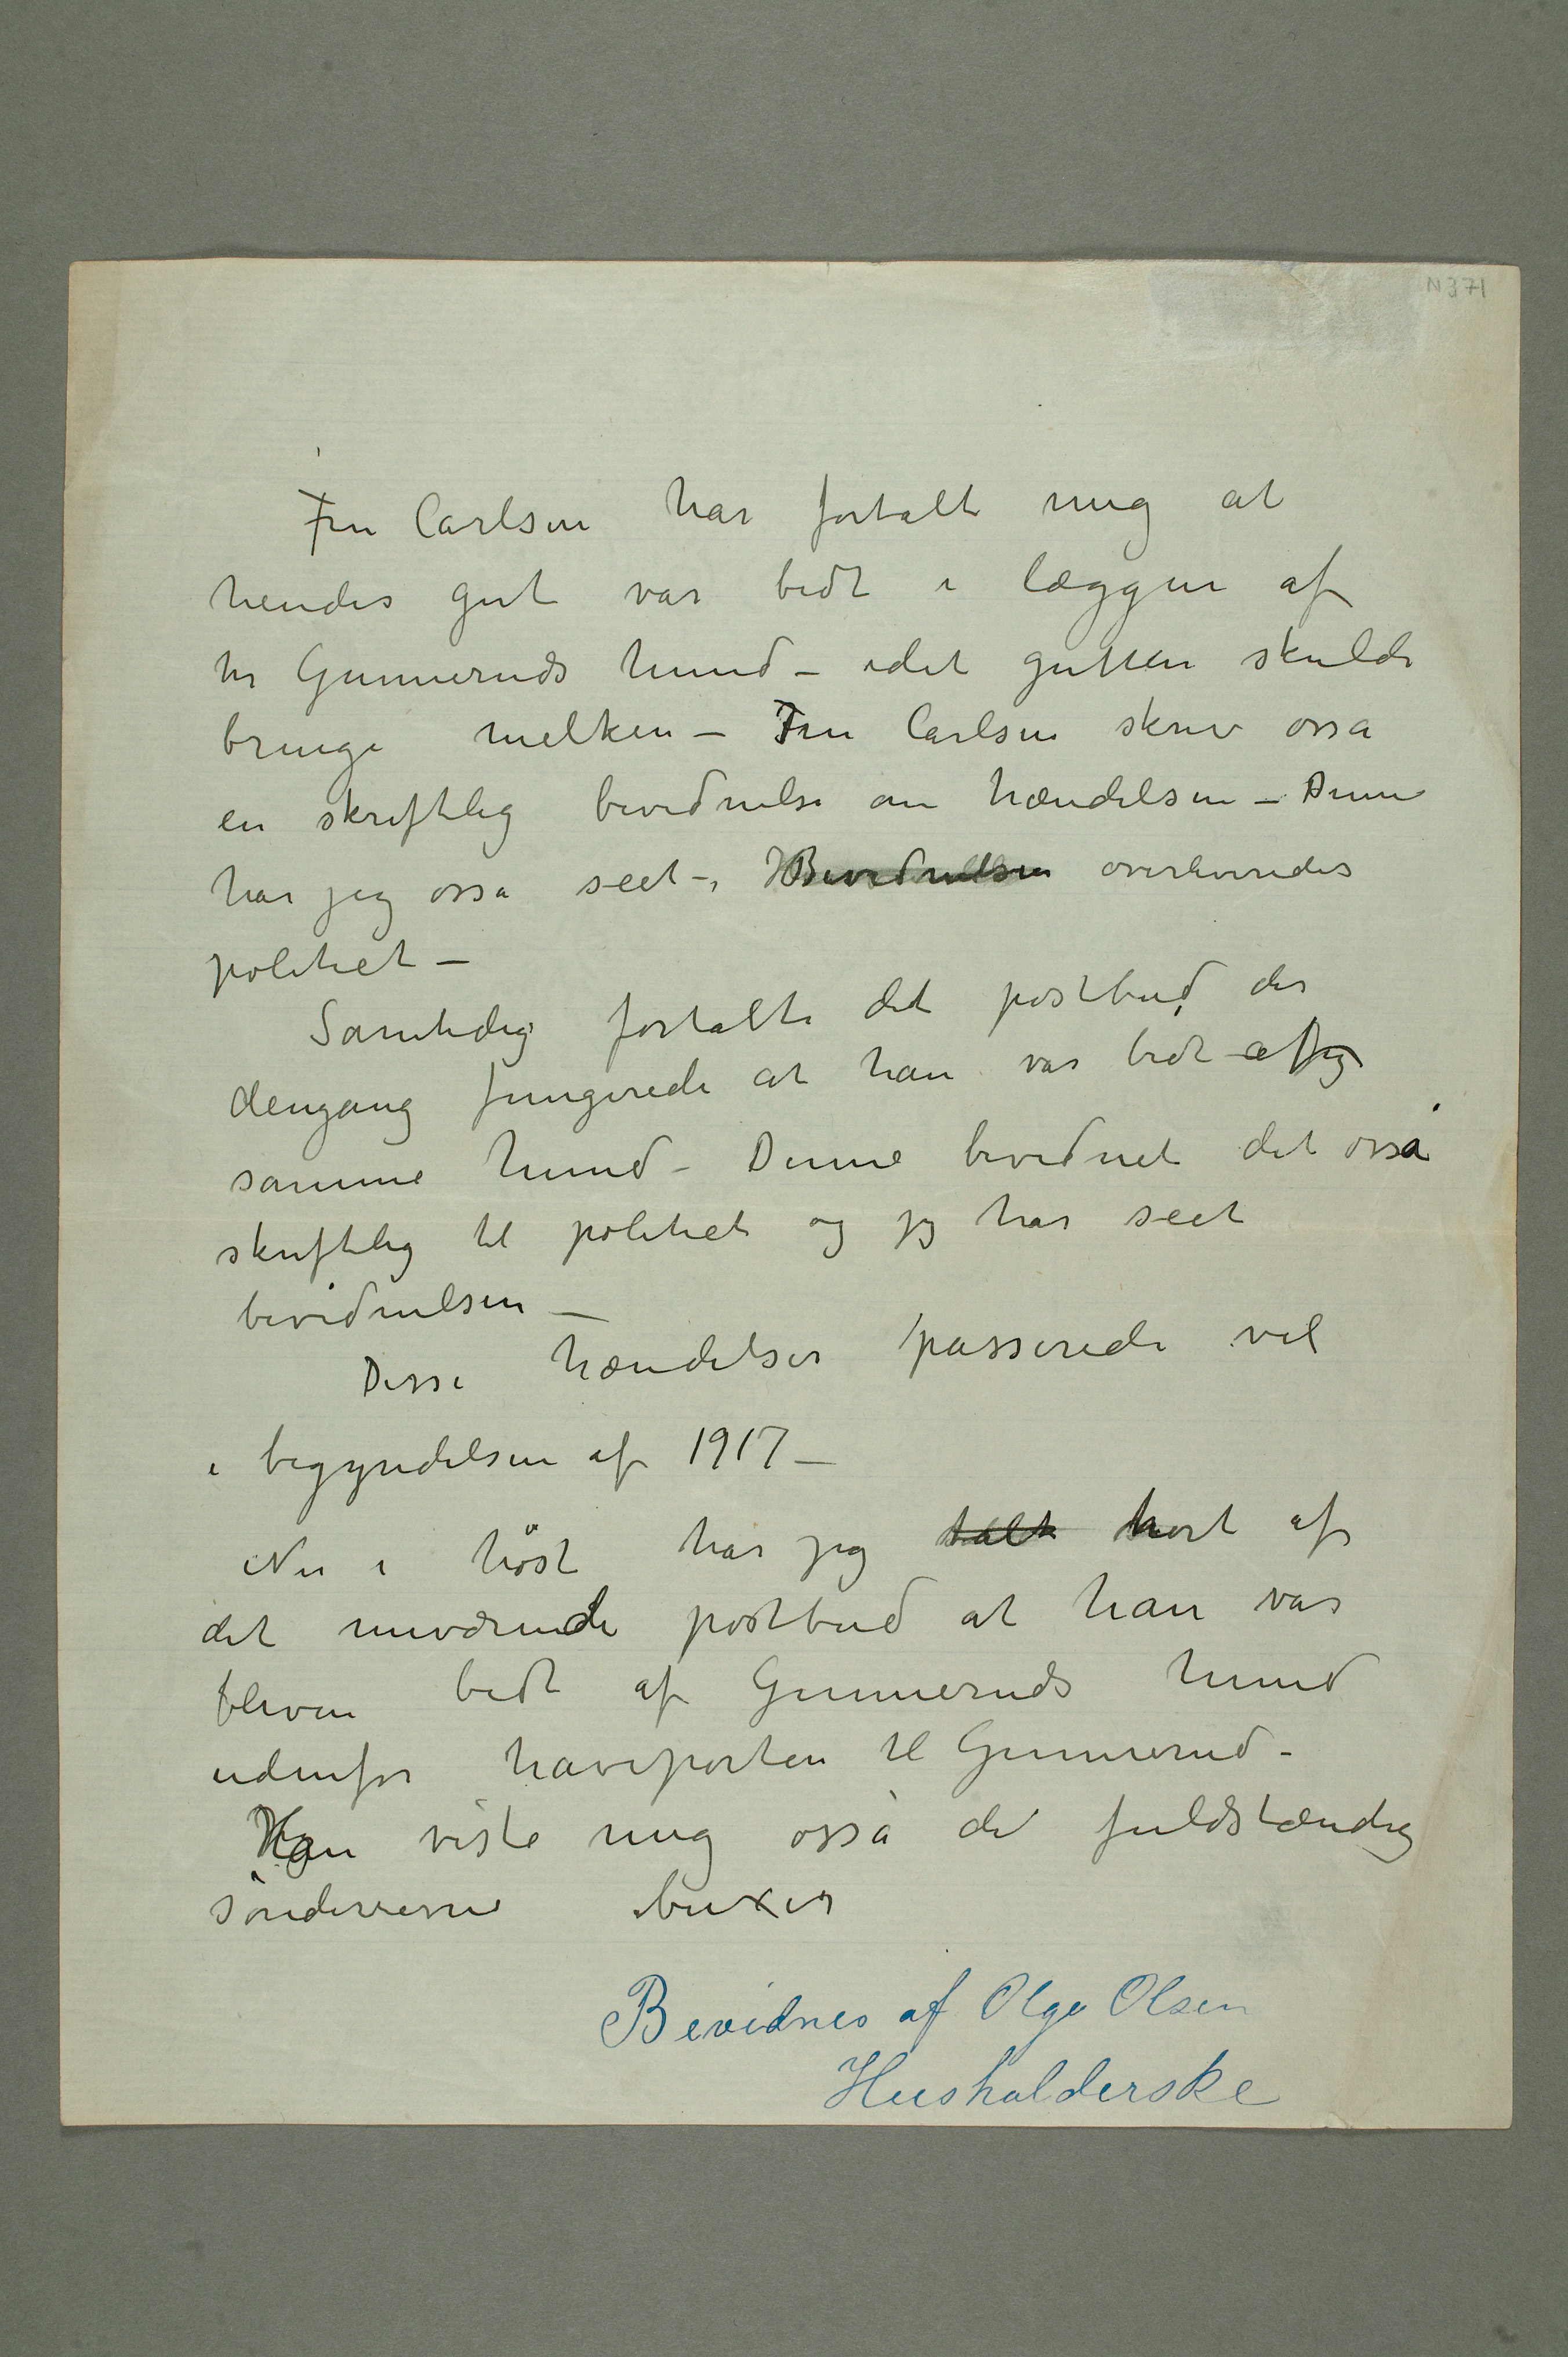 N 371
Fru Carlsen har fortalt mig at
hendes gut var bidt i læggen af
hr Gunneruds hund – idet gutten skulde
bringe melken – Fru Carlsen skrev ossa
en skriftlig bevidnelse om hændelsen – Denne
har jeg ossa seet –, Bevidnelsen overleveredes
politiet –
Samtidig fortalte det postbud der
dengang fungerede at han var bidt af
samme hund – Denne bevidnet det osså
skriftlig til politiet og jeg har seet
bevidnelsen –
Disse hændelser passerede vel
i begyndelsen af 1917 –
Nu i høst har jeg talt hørt af
det nuværende postbud at han var
bleven bidt af Gunneruds hund
udenfor haveporten til Gunnerud –
Han viste mig osså de fuldstændig
sønderrevne buxer
Bevidnes af Olga Olsen
Husholderske